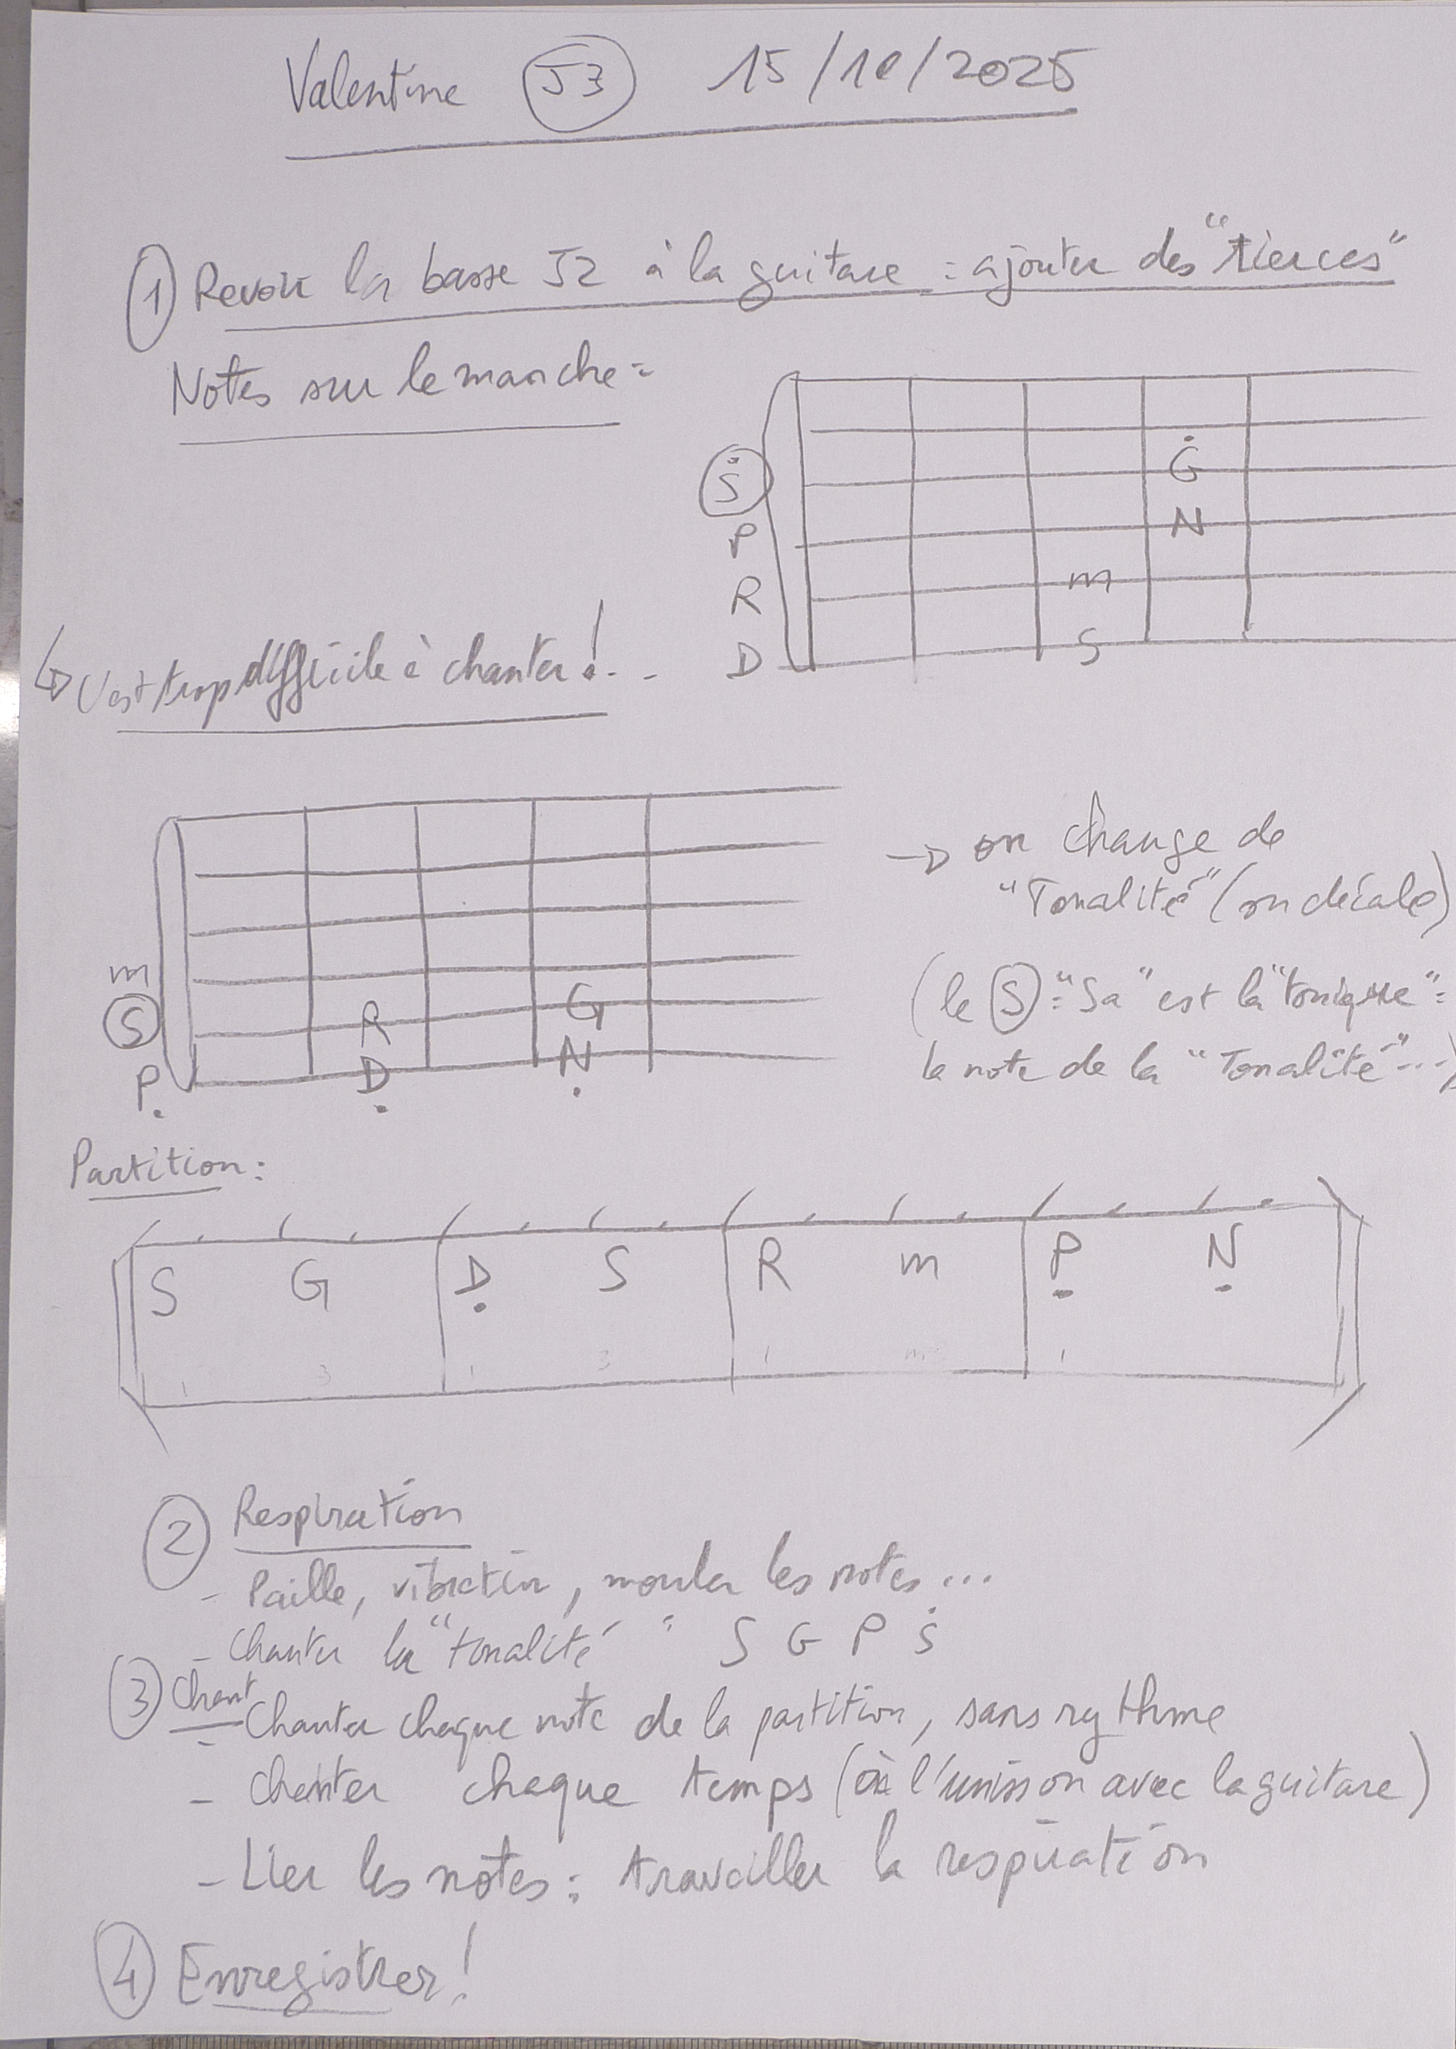 Valentine J3 15/10/2025
1 Revoir la basse J2 à la guitare : ajouter des "tierces"
Notes sur le manche =
Ġ
Ṡ
N
P
m
R
S
D
↳ C'est trop difficile à chanter !..
→ on change de
"Tonalité" (on décale)
m
(le S : "Sa" est la "tonique" =
S R G
la note de la "Tonalité"...)
P. D. N.
Partition :
S G Ḍ S R m P N
1 3 1 3 1 m 1
2 Respiration
- Paille, vibration, monter les notes...
- Chanter la "tonalité" : S G P Ṡ
3 Chant
- Chanter chaque note de la partition, sans rythme
- Chanter chaque temps (à l'unisson avec la guitare)
- Lier les notes : travailler la respiration
4 Enregistrer !